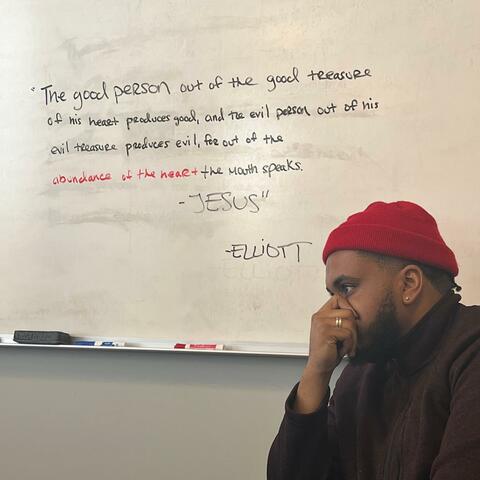 "The good person out of the good treasure
of his heart produces good, and the evil person out of his
evil treasure produces evil, for out of the
abundance of the heart the mouth speaks.
-JESUS"
-ELLIOTT